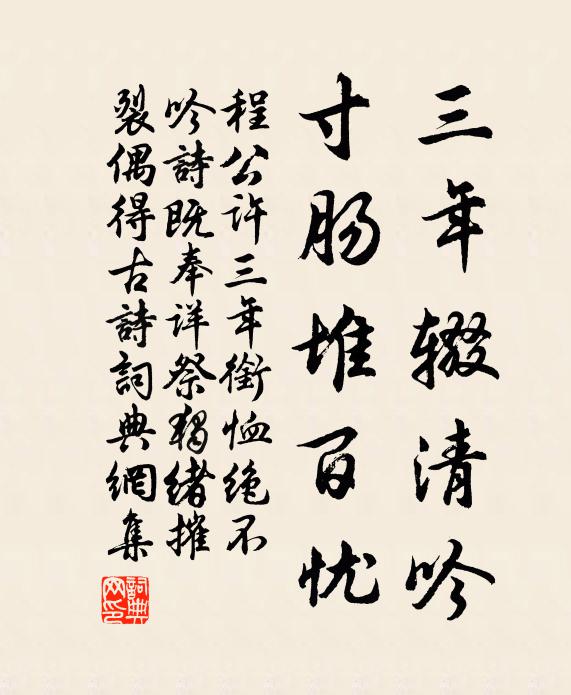 三年辍清吟
寸肠堆百忧
程公许三年銜恤绝不
吟詩既奉祥祭獨緒摧
裂偶得古詩詞典網集
詞典网印